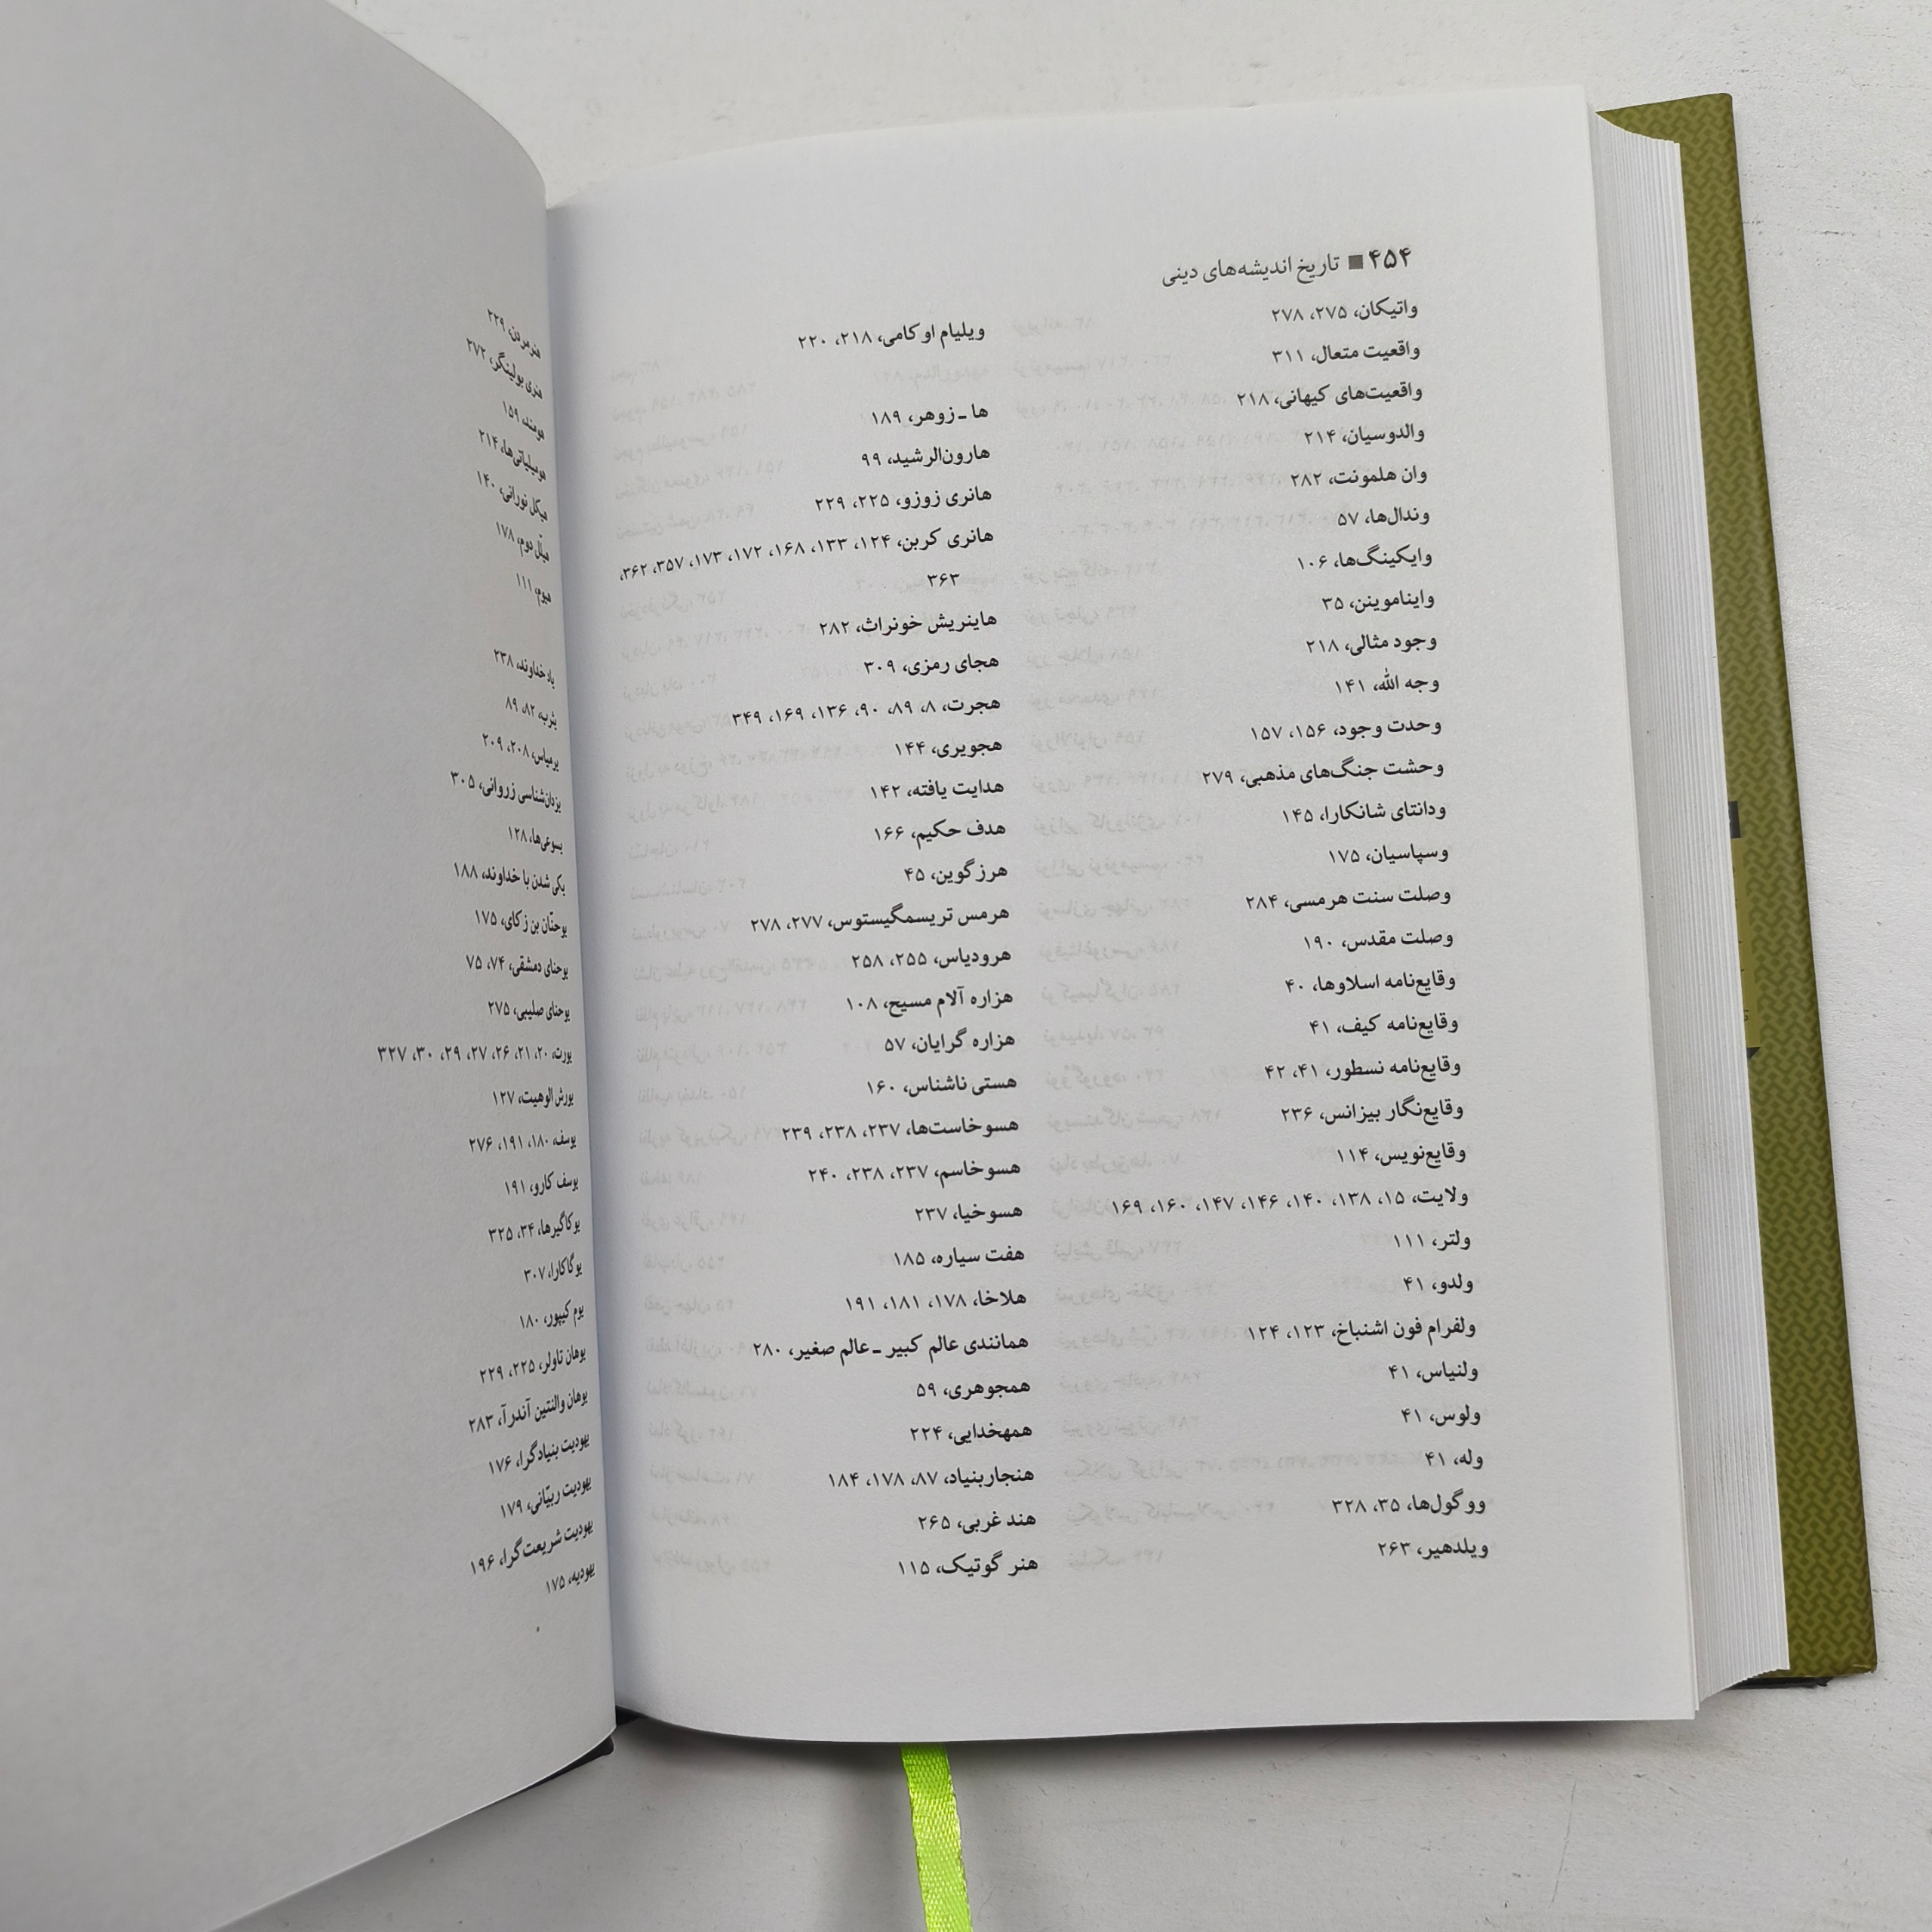 ۴۵۴ ■ تاریخ اندیشه‌های دینی
واتیکان، ۲۷۵، ۲۷۸
واقعیت متعال، ۳۱۱
واقعیت‌های کیهانی، ۲۱۸
والدوسیان، ۲۱۴
وان هلمونت، ۲۸۲
وندال‌ها، ۵۷
وایکینگ‌ها، ۱۰۶
وایناموینن، ۳۵
وجود مثالی، ۲۱۸
وجه الله، ۱۴۱
وحدت وجود، ۱۵۶، ۱۵۷
وحشت جنگ‌های مذهبی، ۲۷۹
ودانتای شانکارا، ۱۴۵
وسپاسیان، ۱۷۵
وصلت سنت هرمسی، ۲۸۴
وصلت مقدس، ۱۹۰
وقایع‌نامه اسلاوها، ۴۰
وقایع‌نامه کیف، ۴۱
وقایع‌نامه نسطور، ۴۱، ۴۲
وقایع‌نگار بیزانس، ۲۳۶
وقایع‌نویس، ۱۱۴
ولایت، ۱۵، ۱۳۸، ۱۴۰، ۱۴۶، ۱۴۷، ۱۶۰، ۱۶۹
ولتر، ۱۱۱
ولدو، ۴۱
ولفرام فون اشنباخ، ۱۲۳، ۱۲۴
ولنیاس، ۴۱
ولوس، ۴۱
وله، ۴۱
ووگول‌ها، ۳۵، ۳۲۸
ویلدهیر، ۲۶۳
ویلیام اوکامی، ۲۱۸، ۲۲۰
ها ـ زوهر، ۱۸۹
هارون‌الرشید، ۹۹
هانری زوزو، ۲۲۵، ۲۲۹
هانری کربن، ۱۲۴، ۱۳۳، ۱۶۸، ۱۷۲، ۱۷۳، ۳۵۷، ۳۶۲،
۳۶۳
هاینریش خونراث، ۲۸۲
هجای رمزی، ۳۰۹
هجرت، ۸، ۸۹، ۹۰، ۱۳۶، ۱۶۹، ۳۴۹
هجویری، ۱۴۴
هدایت یافته، ۱۴۲
هدف حکیم، ۱۶۶
هرزگوین، ۴۵
هرمس تریسمگیستوس، ۲۷۷، ۲۷۸
هرودیاس، ۲۵۵، ۲۵۸
هزاره آلام مسیح، ۱۰۸
هزاره گرایان، ۵۷
هستی ناشناس، ۱۶۰
هسوخاست‌ها، ۲۳۷، ۲۳۸، ۲۳۹
هسوخاسم، ۲۳۷، ۲۳۸، ۲۴۰
هسوخیا، ۲۳۷
هفت سیاره، ۱۸۵
هلاخا، ۱۷۸، ۱۸۱، ۱۹۱
همانندی عالم کبیر ـ عالم صغیر، ۲۸۰
همجوهری، ۵۹
همهخدایی، ۲۲۴
هنجاربنیاد، ۸۷، ۱۷۸، ۱۸۴
هند غربی، ۲۶۵
هنر گوتیک، ۱۱۵
هنر مردن، ۲۲۹
هنری بولینگر، ۲۷۲
هومند، ۱۵۹
هومیلیاتی‌ها، ۲۱۴
هیکل نورانی، ۱۴۰
هیلّل دوم، ۱۷۸
هیوم، ۱۱۱
یاد خداوند، ۲۳۸
یثرب، ۸۲، ۸۹
یرمیاس، ۲۰۸، ۲۰۹
یزدان‌شناسی زروانی، ۳۰۵
یسوعی‌ها، ۱۲۸
یکی شدن با خداوند، ۱۸۸
یوحنّان بن زکای، ۱۷۵
یوحنای دمشقی، ۷۴، ۷۵
یوحنای صلیبی، ۲۷۵
یورت، ۲۰، ۲۱، ۲۶، ۲۷، ۲۹، ۳۰، ۳۲۷
یورش الوهیت، ۱۲۷
یوسف، ۱۸۰، ۱۹۱، ۲۷۶
یوسف کارو، ۱۹۱
یوکاگیرها، ۳۴، ۳۲۵
یوگاکارا، ۳۰۷
یوم کیپور، ۱۸۰
یوهان تاولر، ۲۲۵، ۲۲۹
یوهان والنتین آندرآ، ۲۸۳
یهودیت بنیادگرا، ۱۷۶
یهودیت ربیّانی، ۱۷۹
یهودیت شریعت‌گرا، ۱۹۶
یهودیه، ۱۷۵